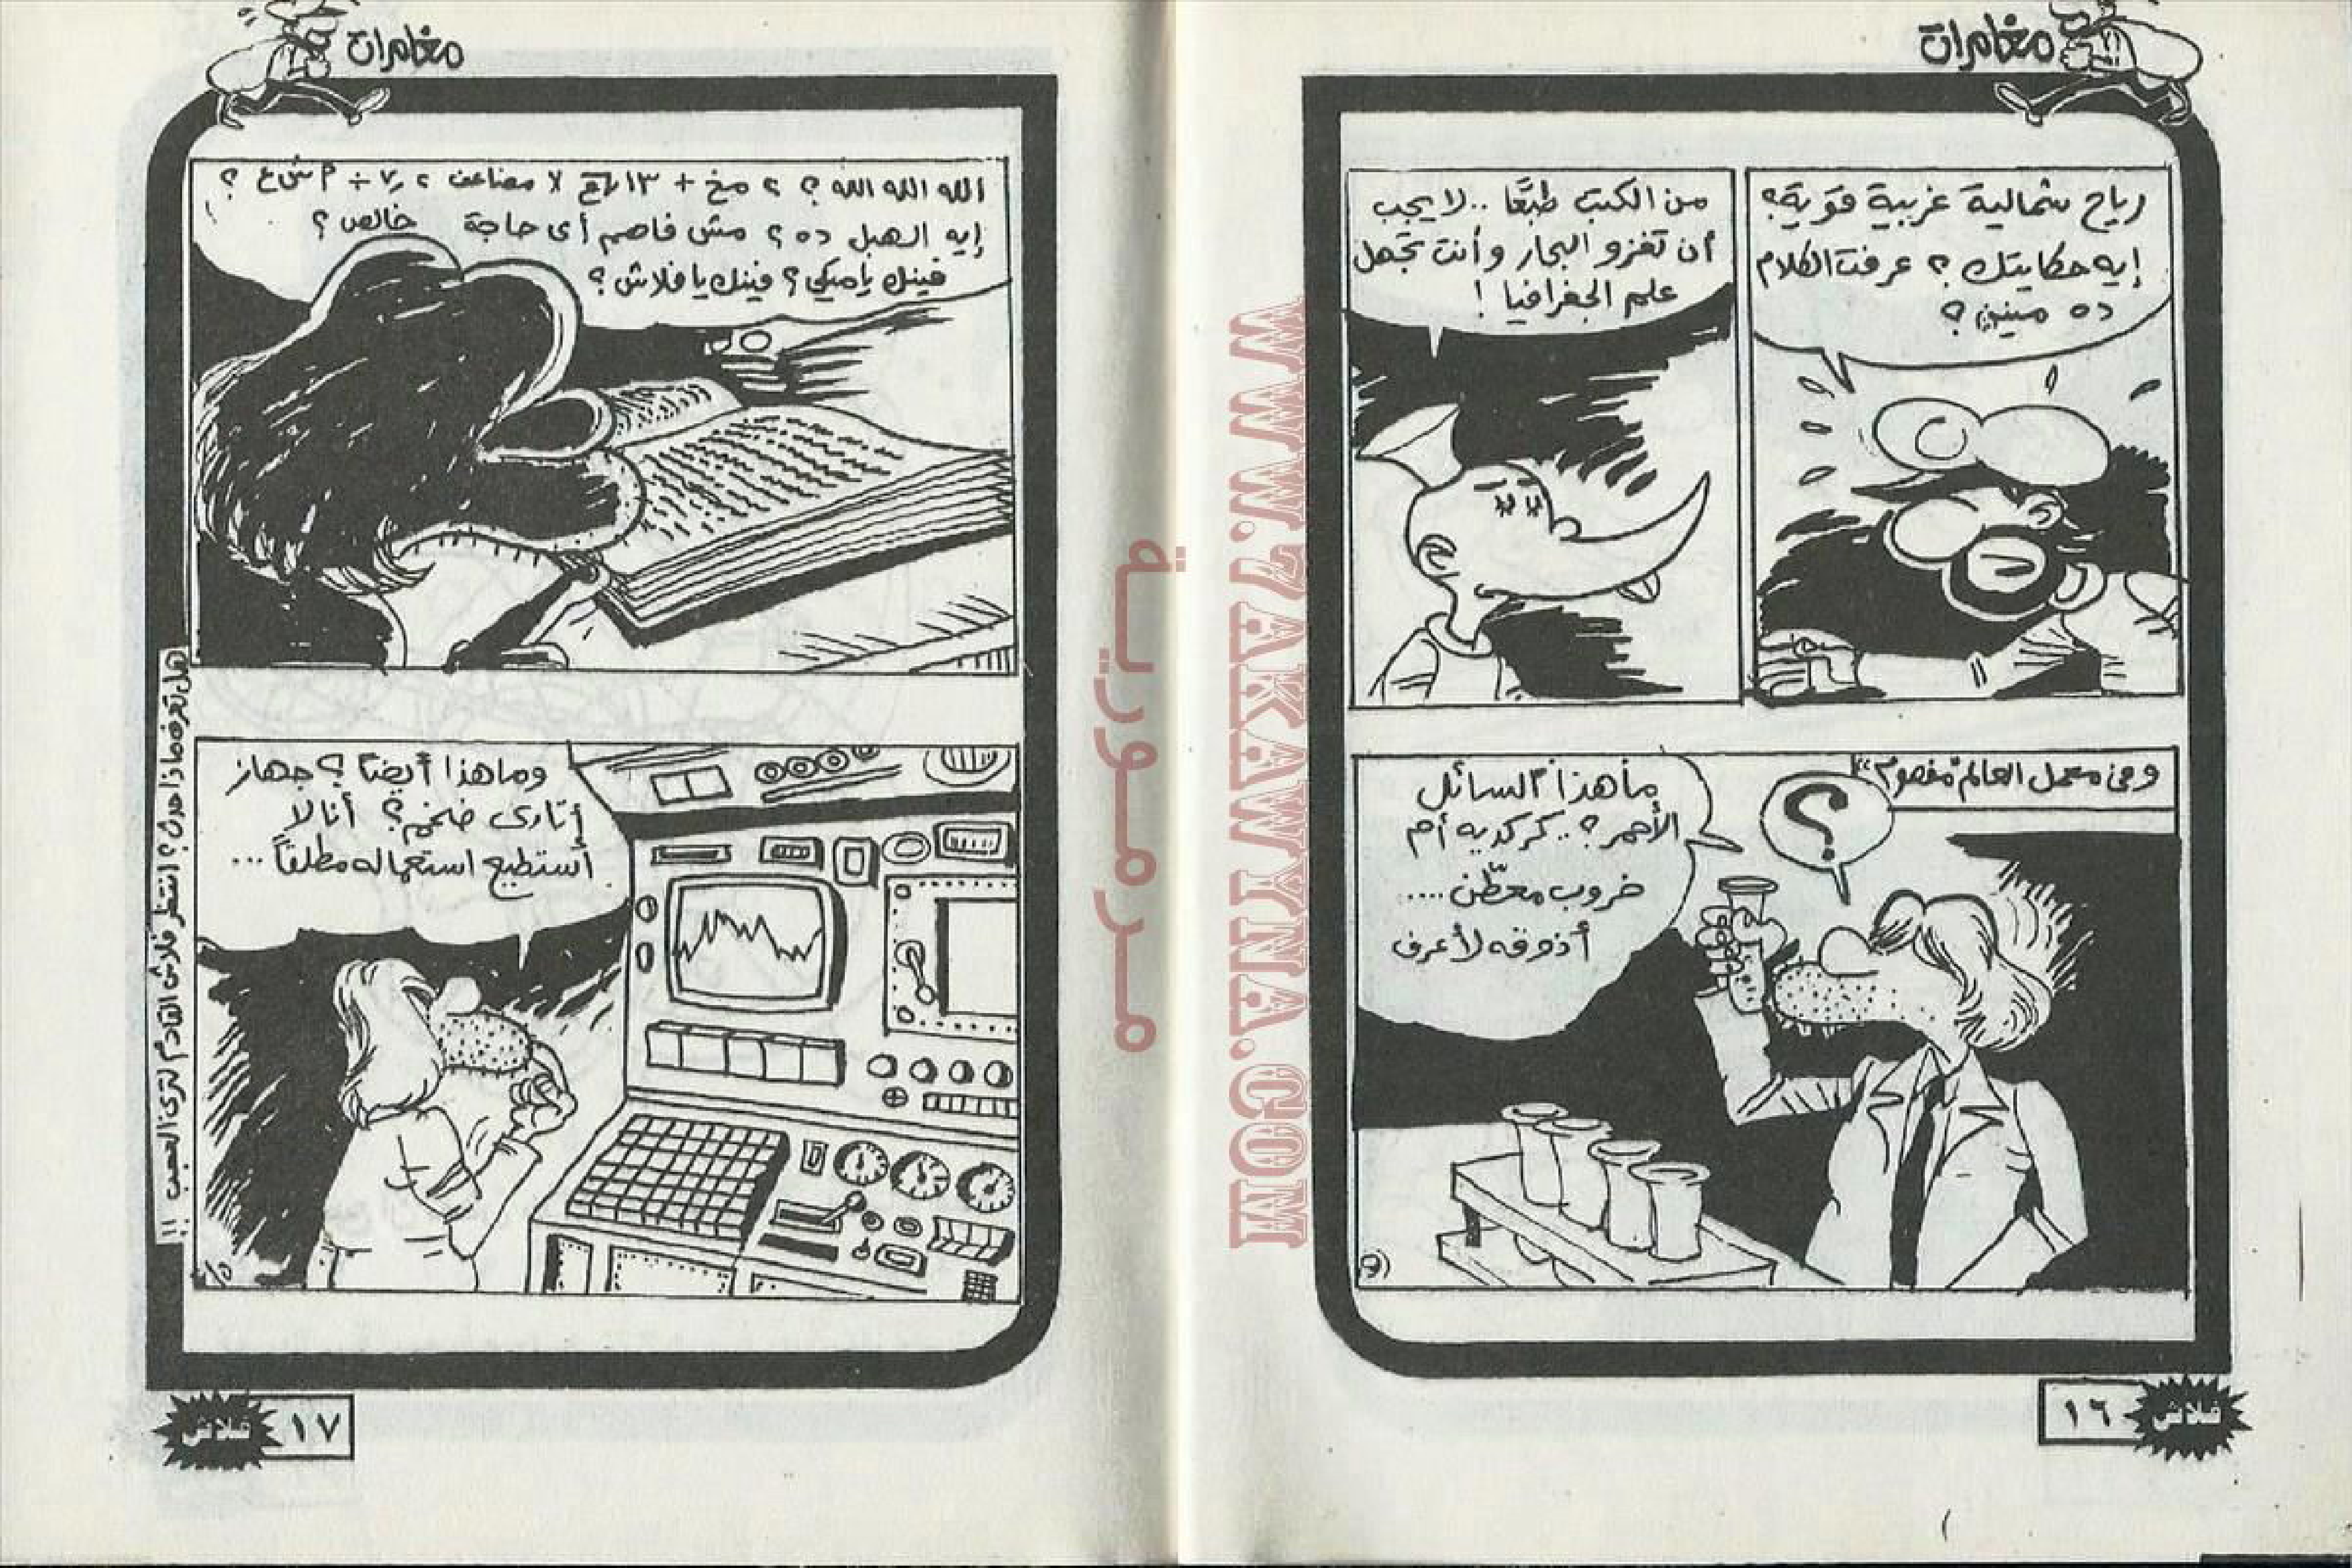 مغامرات
رياح شمالية غربية قوية؟
إيه حكايتك؟ عرفت الكلام
ده منين؟
من الكتب طبعًا .. لا يجب
أن تغزو البحار وأنت تجهل
علم الجغرافيا !
وفى معمل العالم "مفصوم"
؟
ما هذا السائل
الأحمر؟.. كركديه أم
خروب معطّن ....
أذوقه لأعرف
فلاش
١٦
مغامرات
الله الله الله ؟ ٢ مخ + ١٣
إيه الهبل ده ؟ مش فاهم أى حاجة خالص ؟
فينك يا ميكى؟ فينك يا فلاش؟
وما هذا أيضًا ؟ جهاز
أتارى ضخم؟ أنا لا
أستطيع استعماله مطلقاً ...
هل تعرف ماذا حدث؟ انتظر فلاش القادم لترى العجب !!
فلاش
١٧
WWW.7AKAWYNA.COM
مرمورية